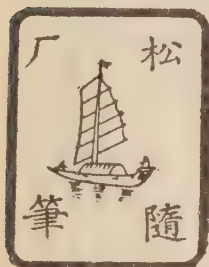 松厂
隨筆